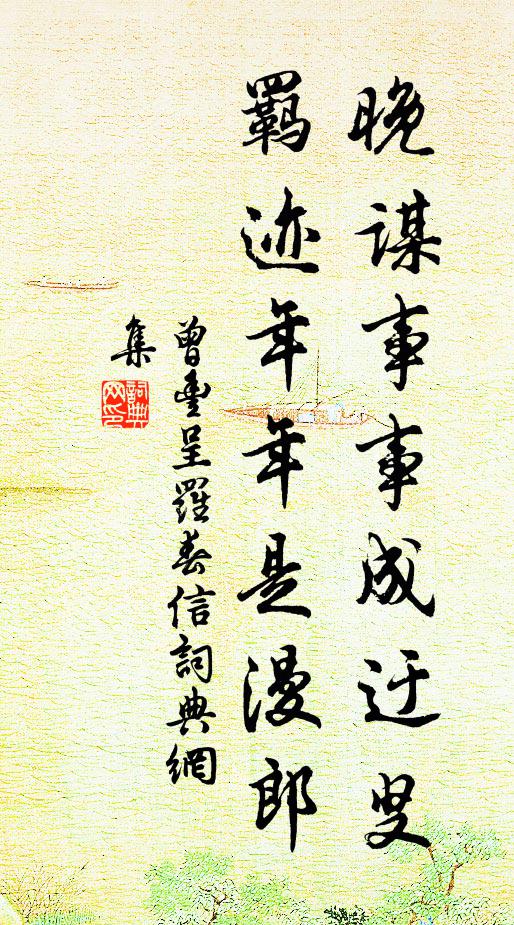 晚谋事事成迂叟
羁迹年年是漫郎
曾豊呈羅春信詞典網
集
詞典
网印